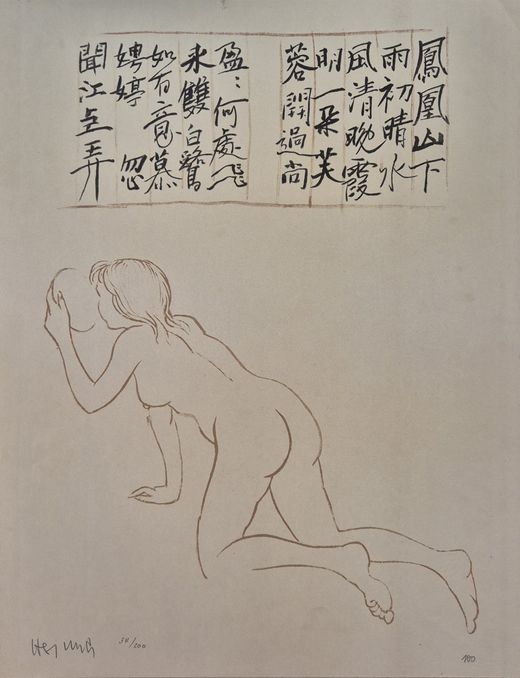 鳳凰山下
雨初晴水
風清晚霞
明一朵芙
蓉開過尚
盈〻何處飛
来雙白鷺
如有意慕
娉婷 忽
聞江上弄
100